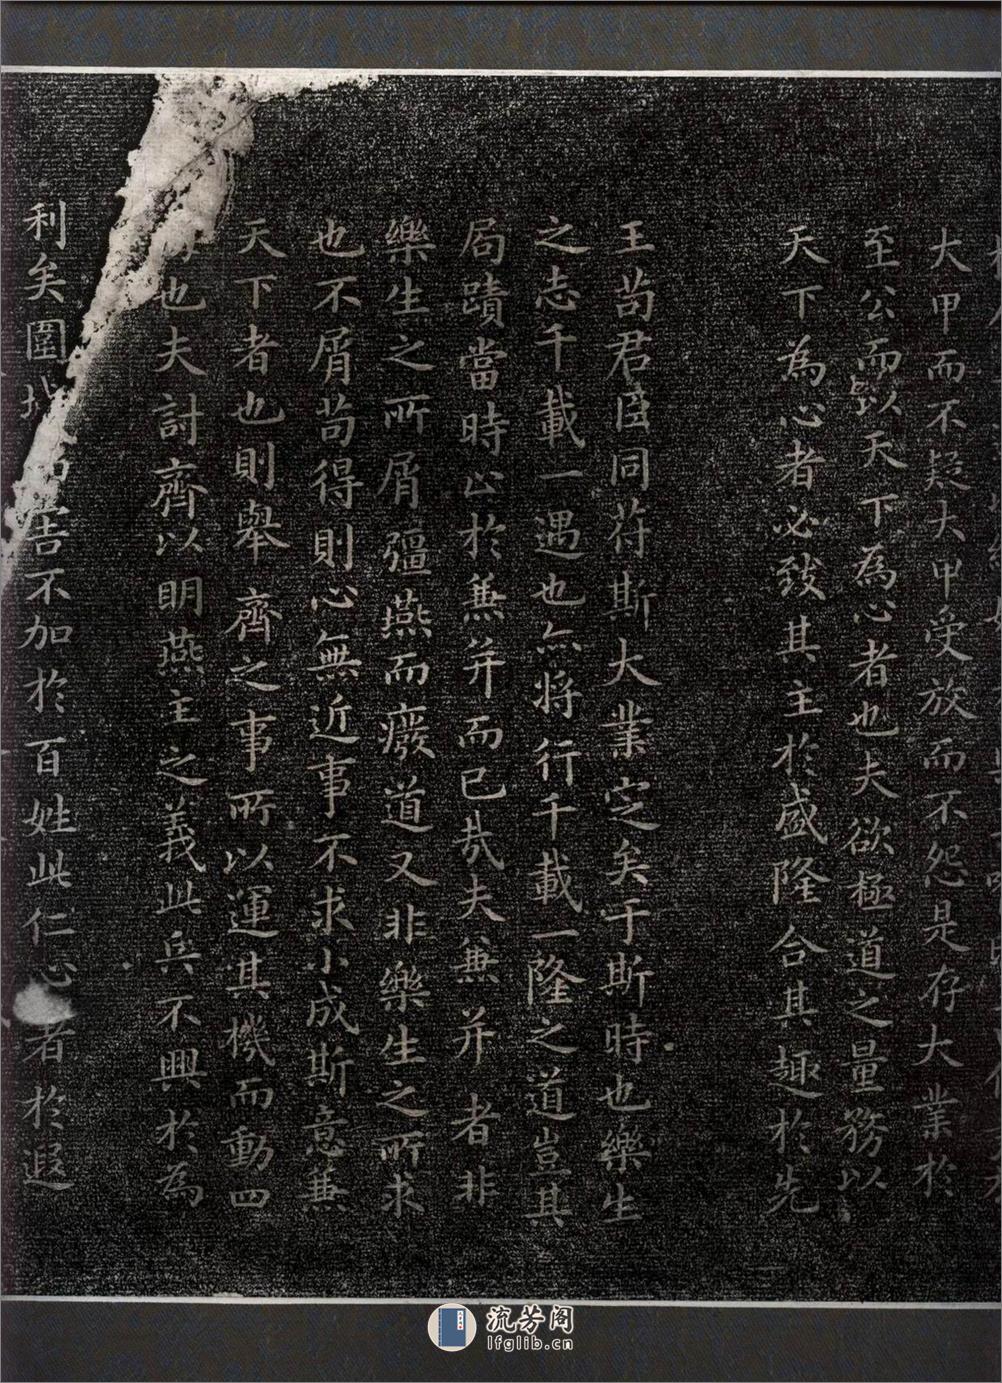 大甲而不疑大甲受放而不怨是存大業於
至公而以天下為心者也夫欲極道之量務以
天下為心者必致其主於盛隆合其趣於先
王苟君臣同符斯大業定矣于斯時也樂生
之志千載一遇也亦將行千載一隆之道豈其
局蹟當時止於兼并而已哉夫兼并者非
樂生之所屑彊燕而癈道又非樂生之所求
也不屑苟得則心無近事不求小成斯意兼
天下者也則舉齊之事所以運其機而動四
也夫討齊以明燕主之義此兵不興於為
利矣圍 害不加於百姓此仁心者於遐
流芳阁
lfglib.cn